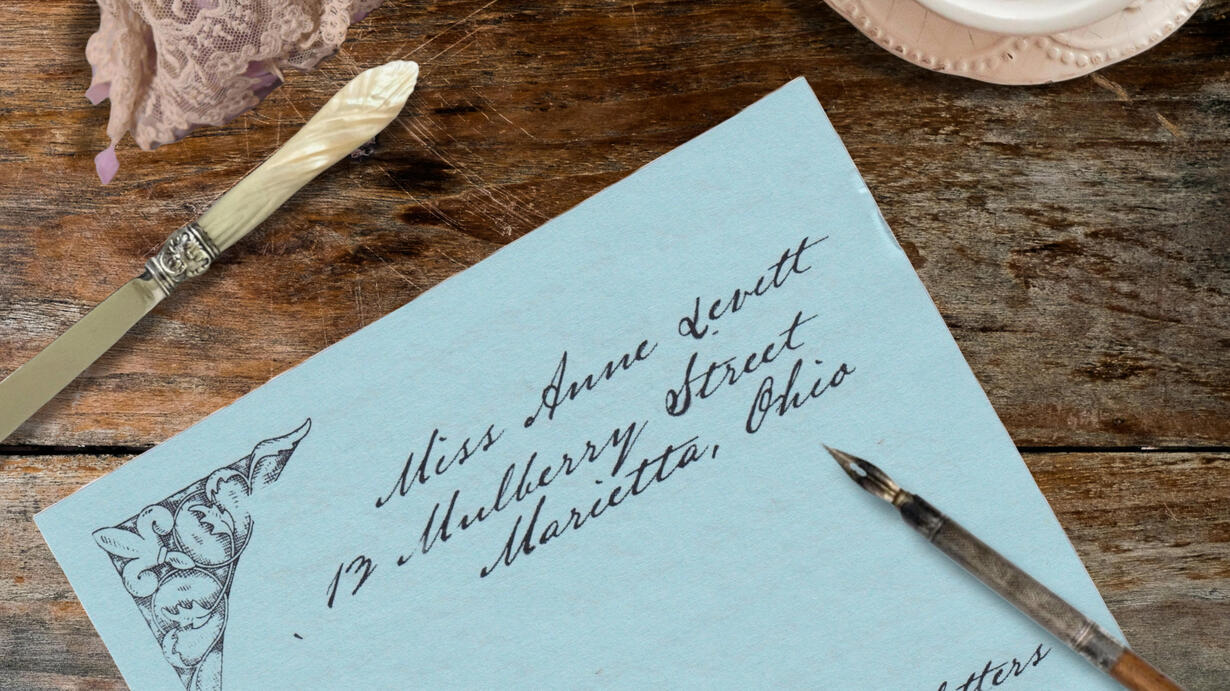 Miss Anne Levitt
13 Mulberry Street
Marietta, Ohio